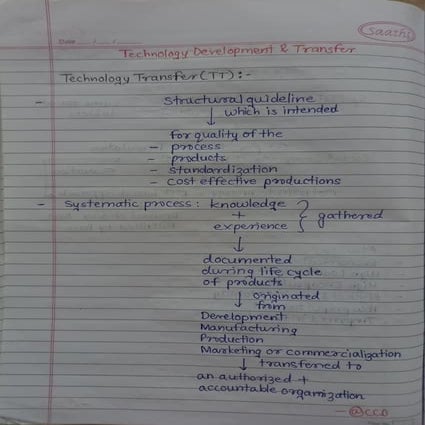 Saathi
Date ___/___/___
Technology Development & Transfer
Technology Transfer (TT) :-
- Structural guideline
↓ which is intended
for quality of the
- process
- products
- standardization
- cost effective productions
- Systematic process : knowledge
+ } gathered
experience
↓
documented
during life cycle
of products
↓ originated
from
Development
Manufacturing
Production
Marketing or commercialization
↓ transferred to
an authorized +
accountable organization